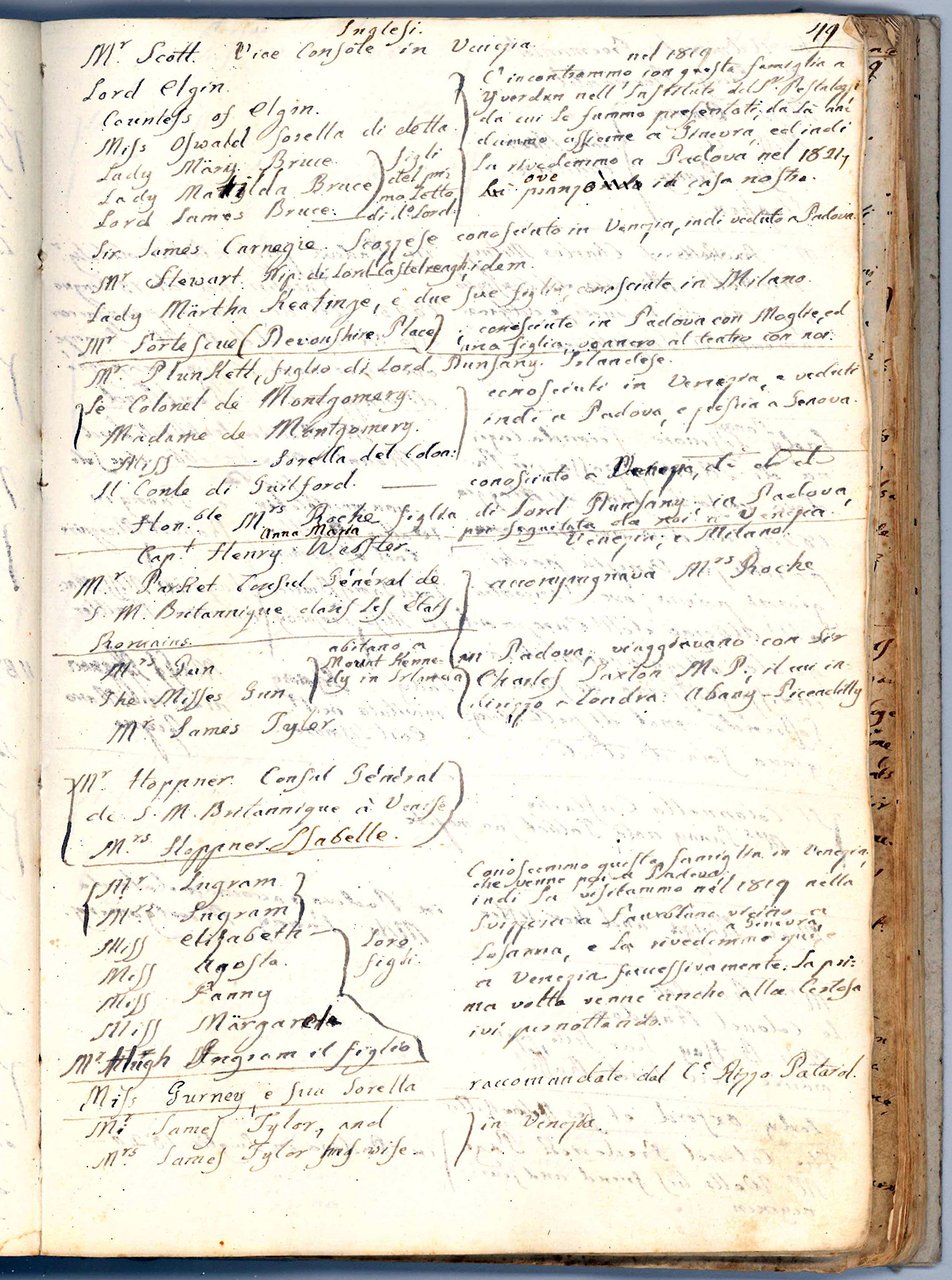 Inglesi.
49
Mr Scott. Vice Console in Venezia
nel 1819
Lord Elgin.
C'incontrammo con questa famiglia a
Countess of Elgin.
Yverdun nell'Institute del Sr Pestalozzi
Miss Oswald sorella di detta.
da cui le fummo presentati, da là an-
Lady Märy Bruce
figli
dammo assieme a Ginevra, ed indi
Lady Matilda Bruce
del pri-
la rivedemmo a Padova nel 1821,
Lord James Bruce.
mo letto
di do Lord.
ove pranzò in casa nostra.
Sir James Carnegie. Scozzese conosciuto in Venezia, indi veduto a Padova.
Mr Stewart. Nip. di Lord Castelreagh, idem.
Lady Märtha Keatinge, e due sue figlie, conosciute in Milano.
Mr Fortescue (Devonshire Place)
conosciuto in Padova con Moglie, ed
una figlia, vennero al teatro con noi.
Mr Plunkett, figlio di Lord Dunsany. Irlandese.
Le Colonel de Montgomery.
conosciuti in Venezia, e veduti
Madame de Montgomery.
indi a Padova, e poscia a Genova.
Miss ——— Sorella del Colon:
Il Conte di Guilford. ——
conosciuto a Venezia,
Hon.ble Mrs Roche figlia di Lord Dunsany; in Padova,
Anna Maria
poi seguitata da noi a Venezia
Venezia, e Milano.
Capt Henry Webster.
accompagnava Mrs Roche
Mr Parket Consul Général de
S. M. Britannique dans les États
Romains.
Mrs Gun
abitano a
Mount Kenne-
dy in Irlanda
in Padova; viaggiavano con Sir
The Misses Gun
Charles Paxton M. P., il cui in-
dirizzo a Londra: Albany-Piccadilly
Mr James Tyler
Mr Hoppner. Consul Général
de S. M. Britannique à Venise
Mrs Hoppner Isabelle.
Mr Ingram
Mrs Ingram
Miss Elisabeth
Miss Agosta.
Miss Fanny
Miss Märgareta
loro
figli.
Mr Hugh Ingram il figlio
Conoscemmo questa famiglia in Venezia,
che venne poi a Padova;
indi la visitammo nel 1819 nella
Svizzera a vicino a
Losanna, e la rivedemmo
a Ginevra,
a Venezia successivamente. La pri-
ma volta venne anche alla Certosa
ivi pernottando.
Miss Gurney, e sua sorella
raccomandate dal Ce Rizzo Patarol.
Mr James Tylor, and
in Venezia.
Mrs James Tylor his wife.